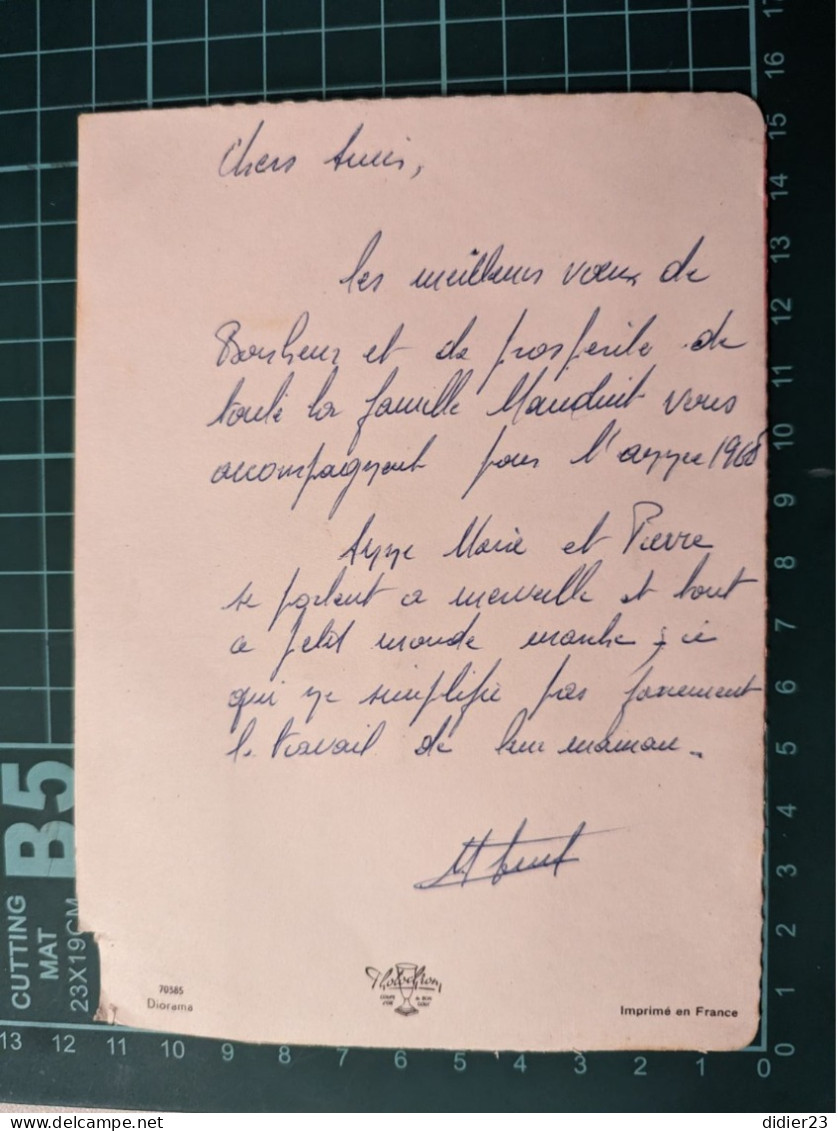 Chers Amis,
les meilleurs vœux de
Bonheur et de prosperite de
toute la famille Mauduit vous
accompagnent pour l'annee 1968
Anne Marie et Pierre
se portent a merveille et tout
ce petit monde marche ; ce
qui ne simplifie pas forcement
le travail de leur maman.
70585
Diorama
Photochrom
COUPE D'OR du BON GOUT
Imprimé en France
CUTTING
MAT
23X19CM
B5
17
16
15
14
13
12
11
10
9
8
7
6
5
4
3
2
1
0
13 12 11 10 9 8 7 6 5 4 3 2 1 0
didier23